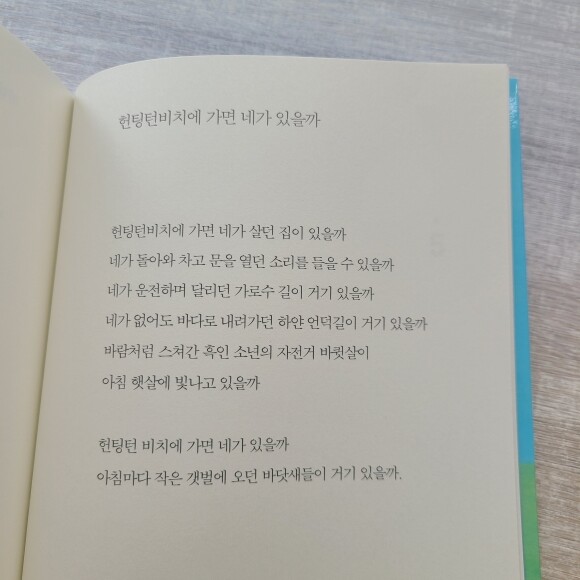 헌팅턴비치에 가면 네가 있을까
헌팅턴비치에 가면 네가 살던 집이 있을까
네가 돌아와 차고 문을 열던 소리를 들을 수 있을까
네가 운전하며 달리던 가로수 길이 거기 있을까
네가 없어도 바다로 내려가던 하얀 언덕길이 거기 있을까
바람처럼 스쳐간 흑인 소년의 자전거 바큇살이
아침 햇살에 빛나고 있을까
헌팅턴 비치에 가면 네가 있을까
아침마다 작은 갯벌에 오던 바닷새들이 거기 있을까.